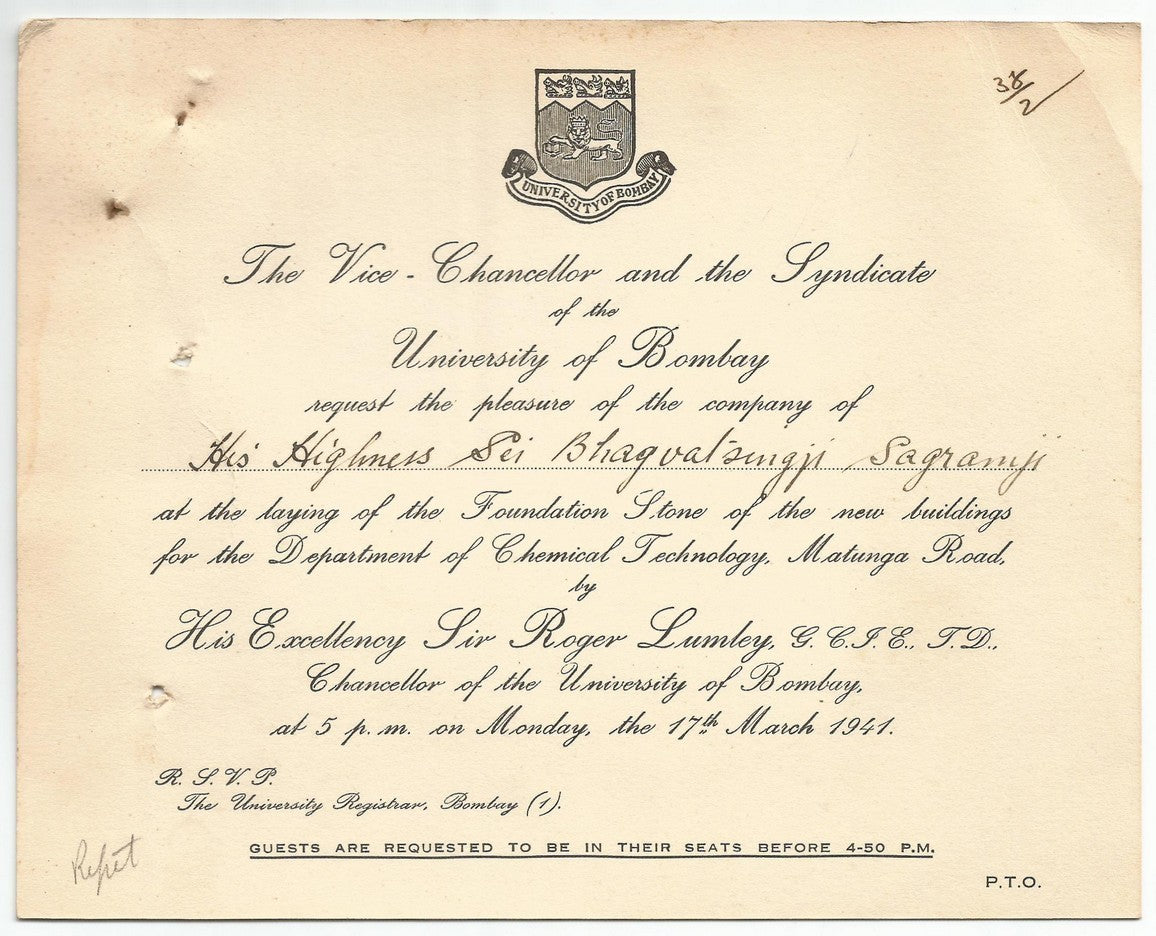 38/2
UNIVERSITY OF BOMBAY
The Vice-Chancellor and the Syndicate
of the
University of Bombay
request the pleasure of the company of
His Highness Sri Bhagvatsingji Sagramji
at the laying of the Foundation Stone of the new buildings
for the Department of Chemical Technology, Matunga Road,
by
His Excellency Sir Roger Lumley, G.C.I.E., T.D.,
Chancellor of the University of Bombay,
at 5 p.m. on Monday, the 17th March 1941.
R. S. V. P.
The University Registrar, Bombay (1).
GUESTS ARE REQUESTED TO BE IN THEIR SEATS BEFORE 4-50 P.M.
P.T.O.